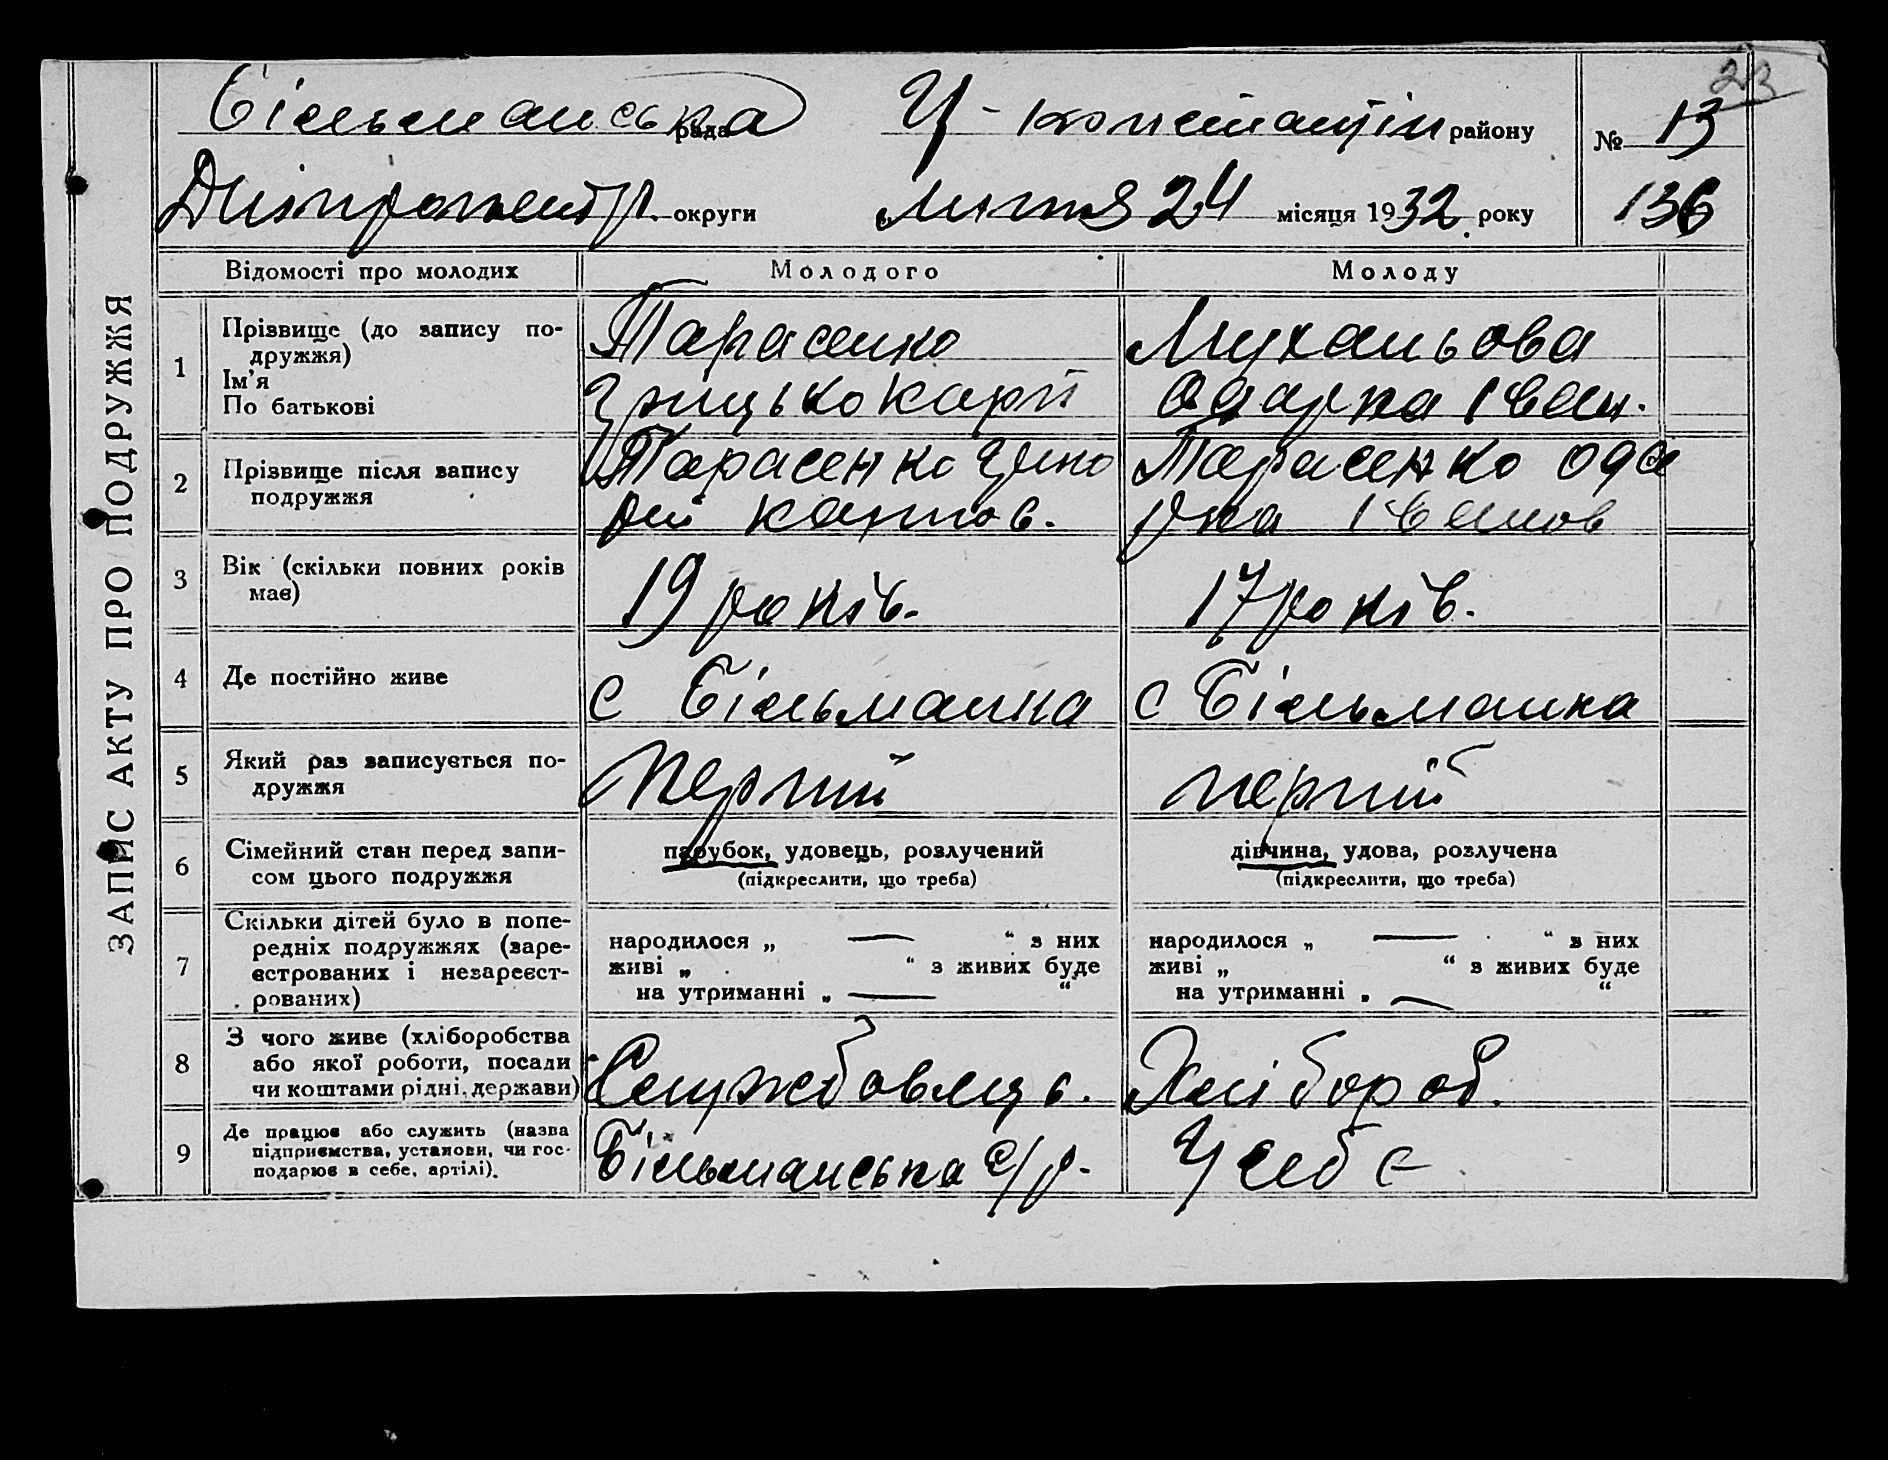 23
Більманська рада Ц-констянтін району № 13
Дніпропетр. округи Лютня 24 місяця 1932. року 136
ЗАПИС АКТУ ПРО ПОДРУЖЖЯ
Відомості про молодих Молодого Молоду
1 Прізвище (до запису по-
дружжя)
Ім'я
По батькові
Тарасенко
Грицько Карп
Мухальова
Одарка Іван.
2 Прізвище після запису
подружжя
Тарасенко Григо
рій Карпов.
Тарасенко Ода
рка Іванов
3 Вік (скільки повних років
має)
19 років.
17 років.
4 Де постійно живе
с Більманка
с Більманка
5 Який раз записується по-
дружжя
Перший
перший
6 Сімейний стан перед запи-
сом цього подружжя
парубок, удовець, розлучений
(підкреслити, що треба)
дівчина, удова, розлучена
(підкреслити, що треба)
7 Скільки дітей було в попе-
редніх подружжях (заре-
єстрованих і незареєст-
рованих)
народилося „ — “ з них
живі „ “ з живих буде
на утриманні „ — “
народилося „ — “ з них
живі „ “ з живих буде
на утриманні „ — “
8 З чого живе (хліборобства
або якої роботи, посади
чи коштами рідні, держави)
Службовець.
Хлібороб.
9 Де працює або служить (назва
підприємства, установи, чи гос-
подарює в себе, артілі).
Більманська с/р.
У себе